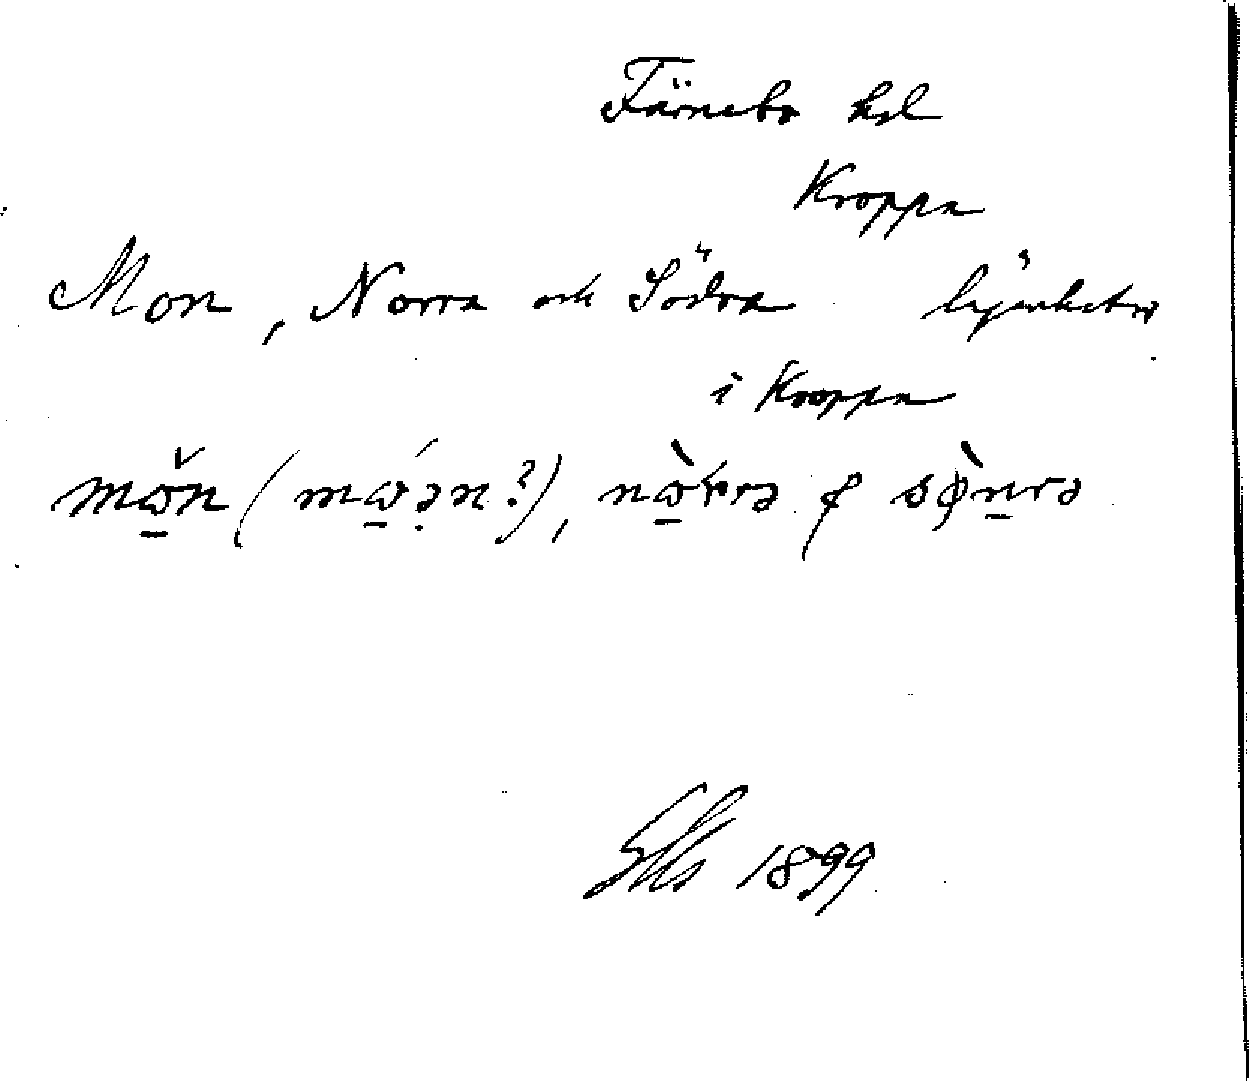 Färnebo hd
Kroppa
Mon, Norra och Södra lägenheter
i Kroppa
mɷ̠̌n (mɷ̠́ə̣n?), nɷ̠̀rrə & sø̀n̠rə
1899